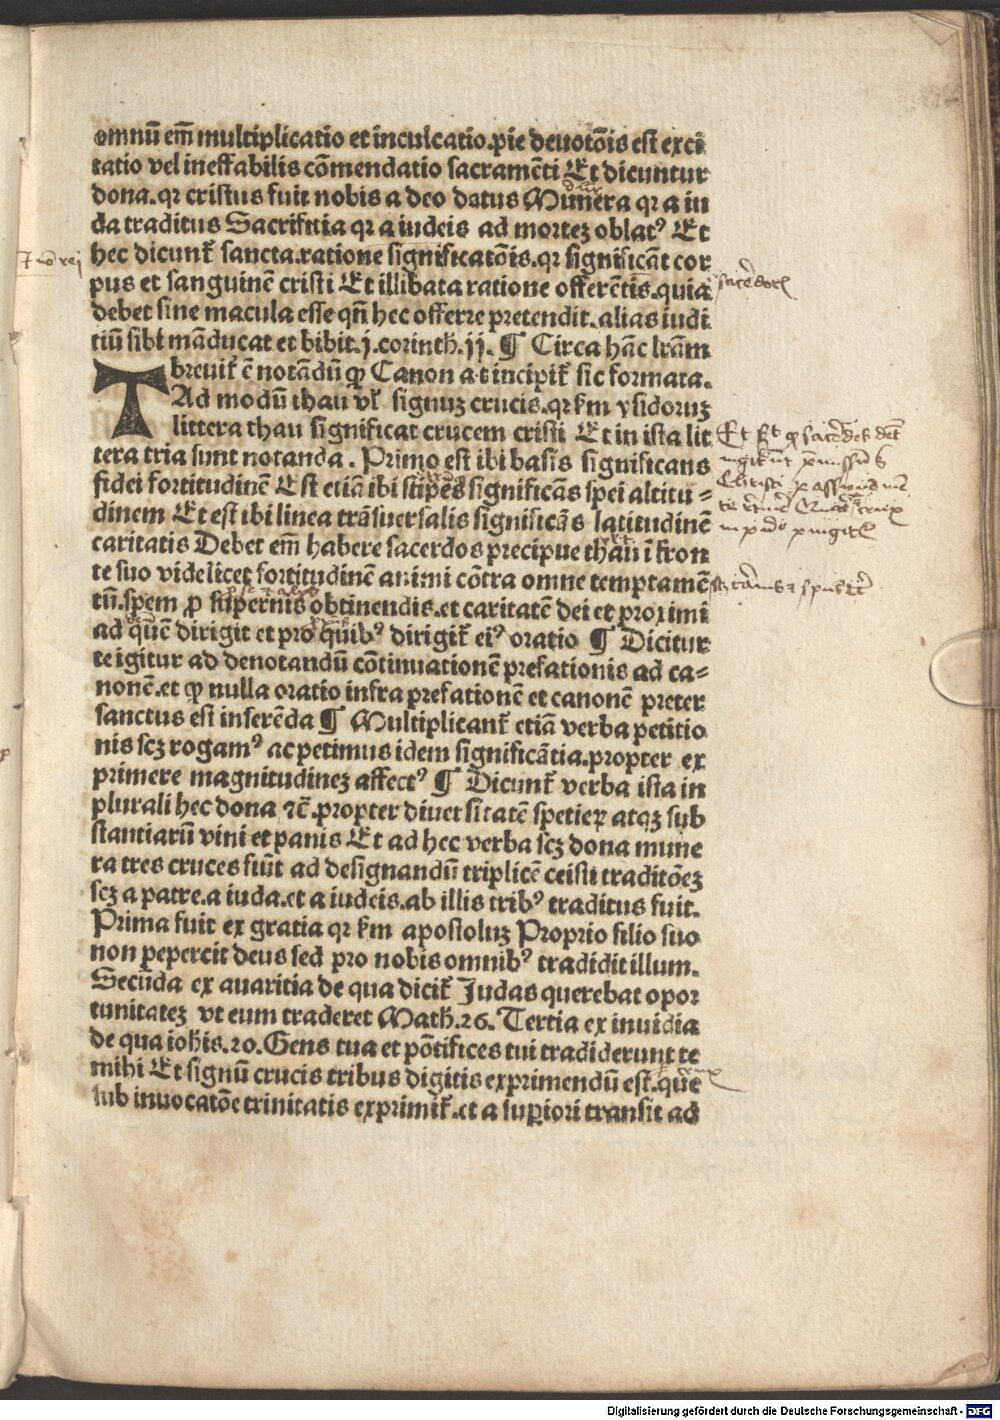 omnū em̄ multiplicatio et inculcatio.pie deuotōis est exci
tatio vel ineffabilis cōmendatio sacramēti Et dicuntur
dona.qr cristus fuit nobis a deo datus Munera qr a iu
da traditus Sacrificia qr a iudeis ad mortez oblatꝰ Et
hec dicunt᷑ sancta.ratione significatōis.qr significāt cor
pus et sanguinē cristi Et illibata ratione offerētis.quia
debet sine macula esse qn̄ hec offerre pretendit.alias iudi
tiū sibi māducat et bibit.j.corinth.ij. ¶ Circa hāc lr̄am
T breuit᷑ ē notādū ꝙ Canon a t incipit᷑ sic formata.
Ad modū thau vl᷑ signuz crucis.qr km ysidoruz
littera thau significat crucem cristi Et in ista lit
tera tria sunt notanda. Primo est ibi basis significans
fidei fortitudinē Est etiā ibi stipes significās spei altitu⸗
dinem Et est ibi linea trāsuersalis significās latitudinē
caritatis Debet em̄ habere sacerdos precipue thau ī fron
te suo videlicet fortitudinē animi cōtra omne temptamē
tū.spem ꝓ supernis obtinendis.et caritatē dei et proximi
ad quē dirigit et pro quibꝰ dirigit᷑ eiꝰ oratio ¶ Dicitur
te igitur ad denotandū cōtinuationē prefationis ad ca⸗
nonē.et ꝙ nulla oratio infra prefationē et canonē preter
sanctus est inserēda ¶ Multiplicant᷑ etiā verba petitio
nis scz rogamꝰ ac petimus idem significātia.propter ex
primere magnitudinez affectꝰ ¶ Dicunt᷑ verba ista in
plurali hec dona ⁊c̄.propter diuersitatē spetieꝝ atqꝫ sub
stantiarū vini et panis Et ad hec verba scz dona mune
ra tres cruces fiūt ad designandū triplicē ceisti traditōez
scz a patre.a iuda.et a iudeis.ab illis tribꝰ traditus fuit.
Prima fuit ex gratia qr km apostoluz Proprio filio suo
non pepercit deus sed pro nobis omnibꝰ tradidit illum.
Secūda ex auaritia de qua dicit᷑ Judas querebat opor
tunitatez vt eum traderet Math.26. Tertia ex inuidia
de qua iohis.20.Gens tua et pōtifices tui tradiderunt te
mihi Et signū crucis tribus digitis exprimendū est.quē
sub inuocatōe trinitatis exprimit᷑.et a superiori transit ad
Digitalisierung gefördert durch die Deutsche Forschungsgemeinschaft - DFG